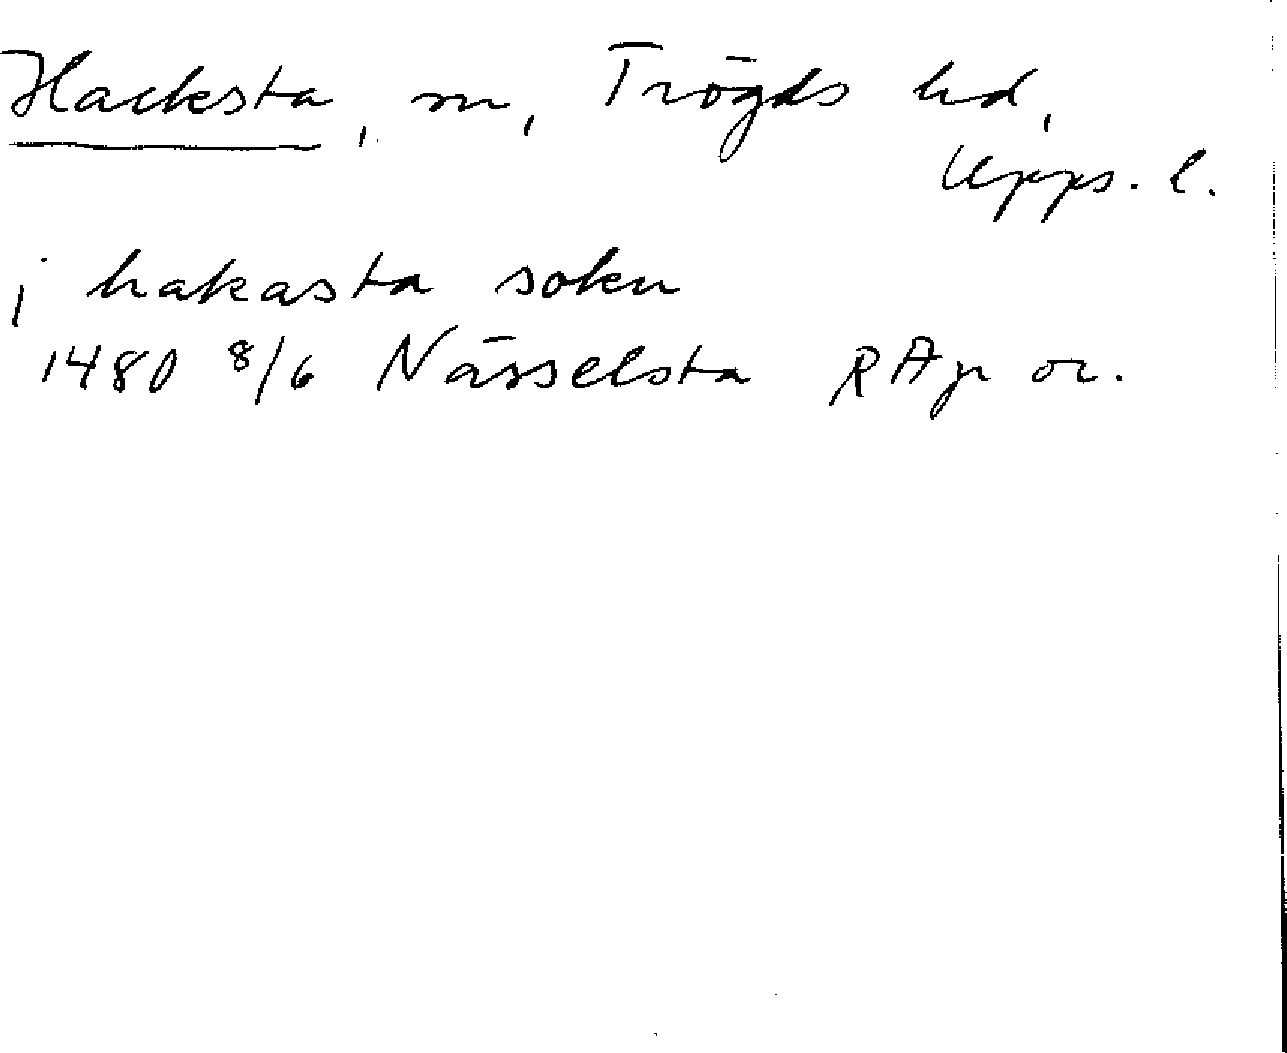 Hacksta, sn, Trögds hd,
Upps. l.
j hakasta sokn
1480 8/6 Nässelsta RAp or.